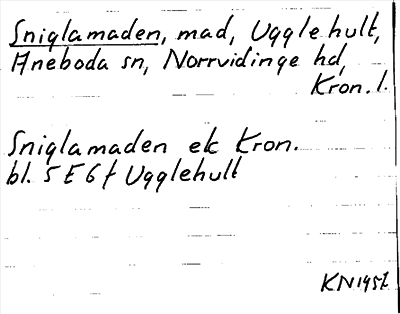 Sniglamaden, mad, Ugglehult,
Aneboda sn, Norrvidinge hd,
Kron. l.
Sniglamaden ek Kron.
bl. 5 E 6 f Ugglehult